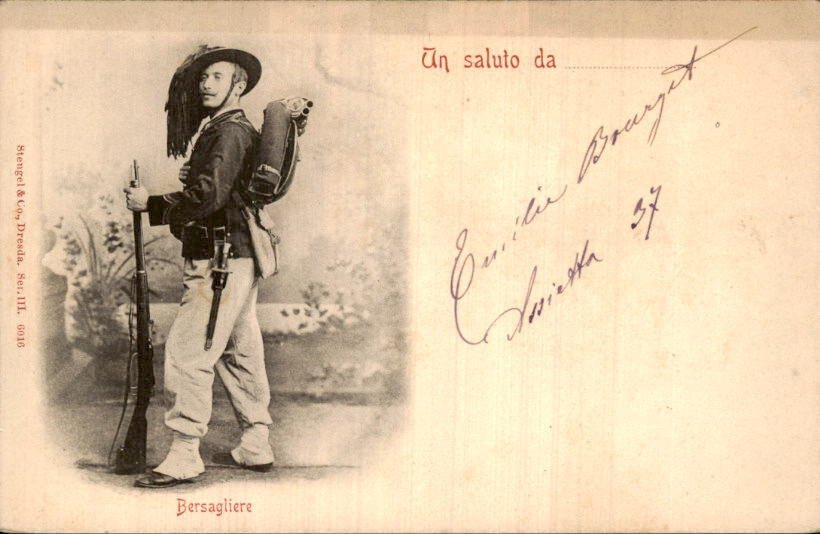 Un saluto da
Emilie Bourgit
Assietta 37
Bersagliere
Stengel & Co., Dresda. Ser. III. 6016